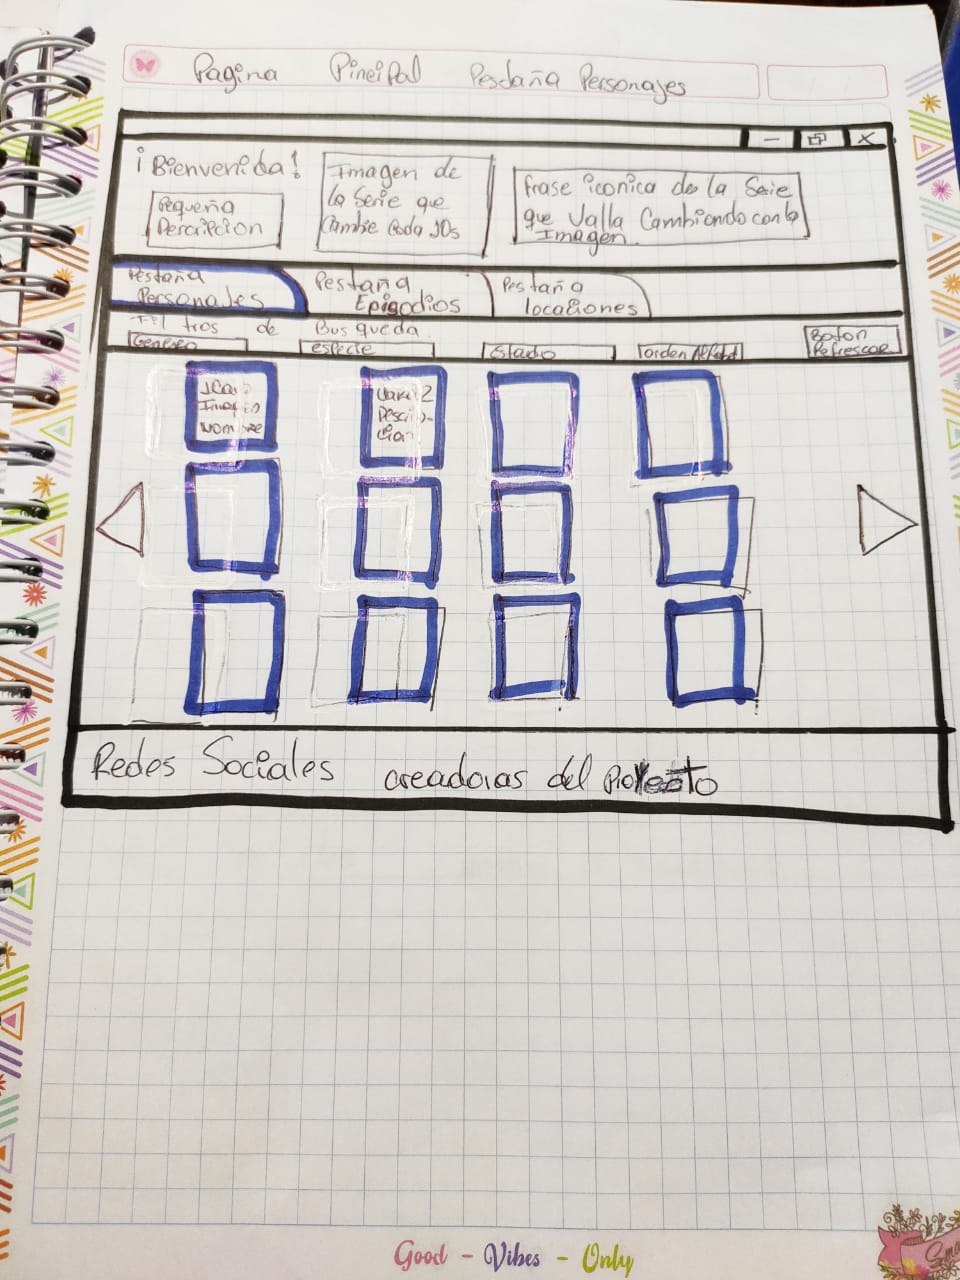 Pagina Pincipal Pesdaña Personajes
¡Bienvenida!
Pequeña
Dercripcion
Imagen de
la Serie que
Cambie Cada 10s
frase iconica de la Serie
que Valla Cambiando con la
Imagen.
Pestaña
Personales
Pestaña
Epigodios
Pestaña
locaciones
Filtros de Busqueda
Genero
especie
Estado
orden Alfabt
Boton
Refrescar
Imagen
Nombre
Redes Sociales creadoras del Proyecto
Good - Vibes - Only